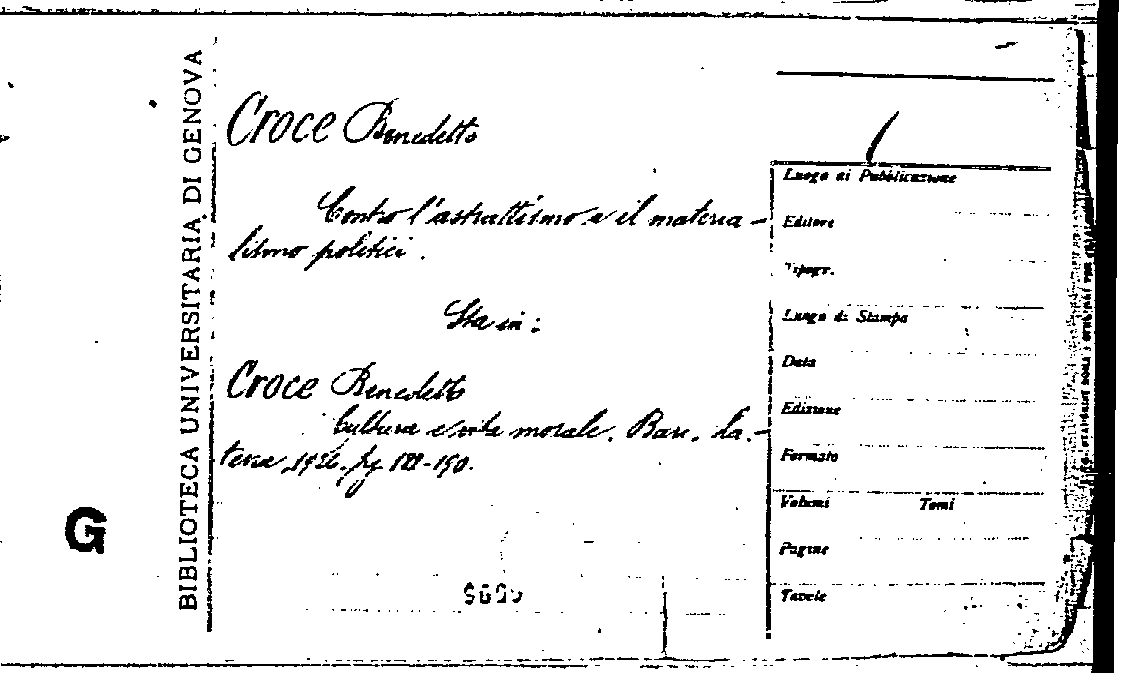 BIBLIOTECA UNIVERSITARIA DI GENOVA
G
Croce Benedetto
Contro l'astrattismo e il materia-
lismo politici.
Sta in:
Croce Benedetto
Cultura e vita morale. Bari, La-
terza, 1926. pg 182-190.
Luogo di Pubblicazione
Editore
Tipogr.
Luogo di Stampa
Data
Edizione
Formato
Volumi Tomi
Pagine
Tavole